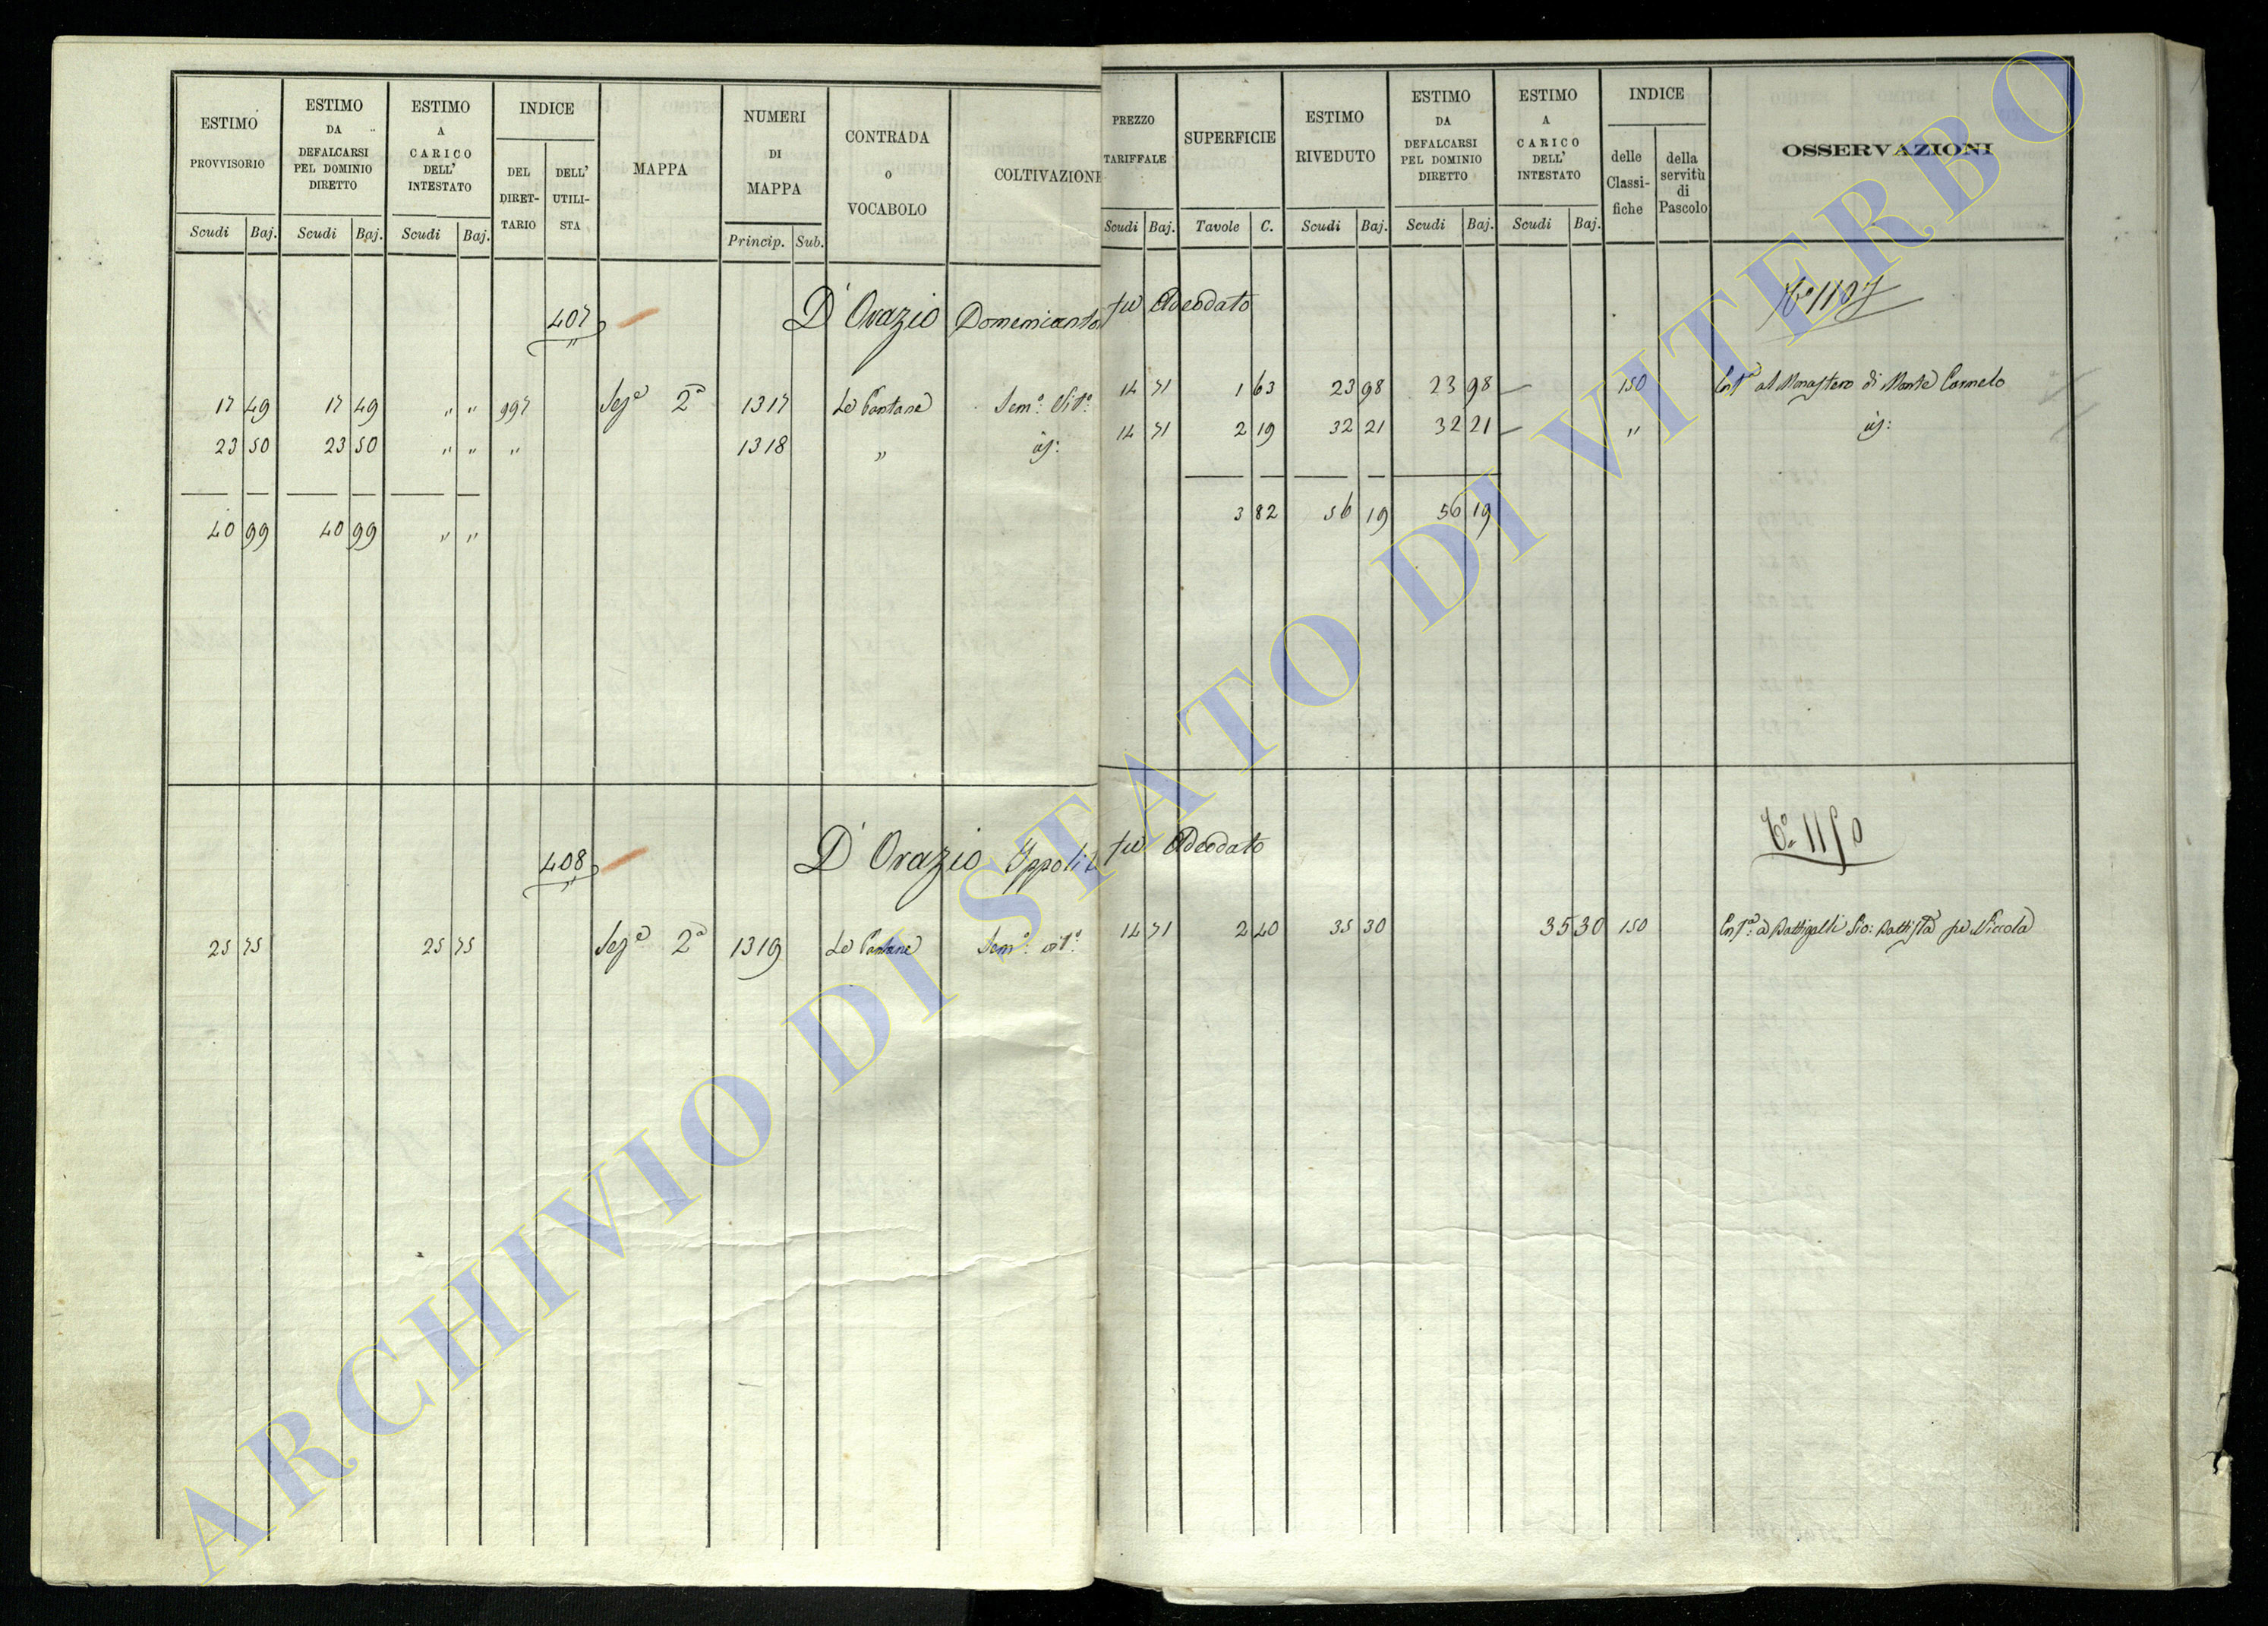 ESTIMO PROVVISORIO Scudi Baj.
ESTIMO DA DEFALCARSI PEL DOMINIO DIRETTO Scudi Baj.
ESTIMO A CARICO DELL' INTESTATO Scudi Baj.
INDICE DEL DIRETTARIO DELL' UTILISTA
MAPPA
NUMERI DI MAPPA Princip. Sub.
CONTRADA O VOCABOLO
COLTIVAZIONE
PREZZO TARIFFALE Scudi Baj.
SUPERFICIE Tavole C.
ESTIMO RIVEDUTO Scudi Baj.
ESTIMO DA DEFALCARSI PEL DOMINIO DIRETTO Scudi Baj.
ESTIMO A CARICO DELL' INTESTATO Scudi Baj.
INDICE delle Classifiche della servitù di Pascolo
OSSERVAZIONI
407 D'Orazio Domenicanto fu Adeodato 1107
17 49 17 49 " " 997 Sez.e 2a 1317 Le Pantane Sem.o Vit.o 14 71 1 63 23 98 23 98 — 150 Ent.a al Monastero di Monte Carmelo
23 50 23 50 " " " 1318 " 14 71 2 19 32 21 32 21 — "
40 99 40 99 " " 3 82 56 19 56 19
408 D'Orazio Ippolit fu Adeodato
25 75 25 75 Sez.e 2a 1319 Le Pantane Sem.o vit.o 14 71 2 40 35 30 35 30 150 Ent.a a Battigalli Gio: Battista fu Niccola
ARCHIVIO DI STATO DI VITERBO